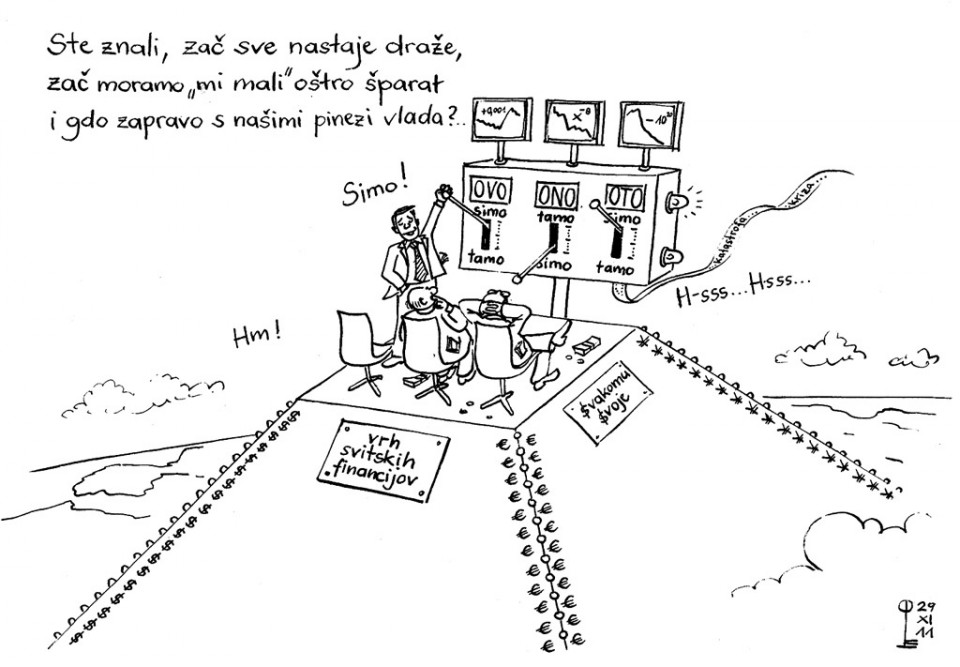 Ste znali, zač sve nastaje draže,
zač moramo „mi mali“ oštro šparat
i gdo zapravo s našimi pinezi vlada?..
+0,001
x⁻⁸
Simo!
OVO
ONO
OTO
simo
tamo
simo
tamo
simo
tamo
katastrofa... kriza...
H-sss...Hsss...
Hm!
$vakomu
$voje
vrh
svitskih
financijov
29
XI
11